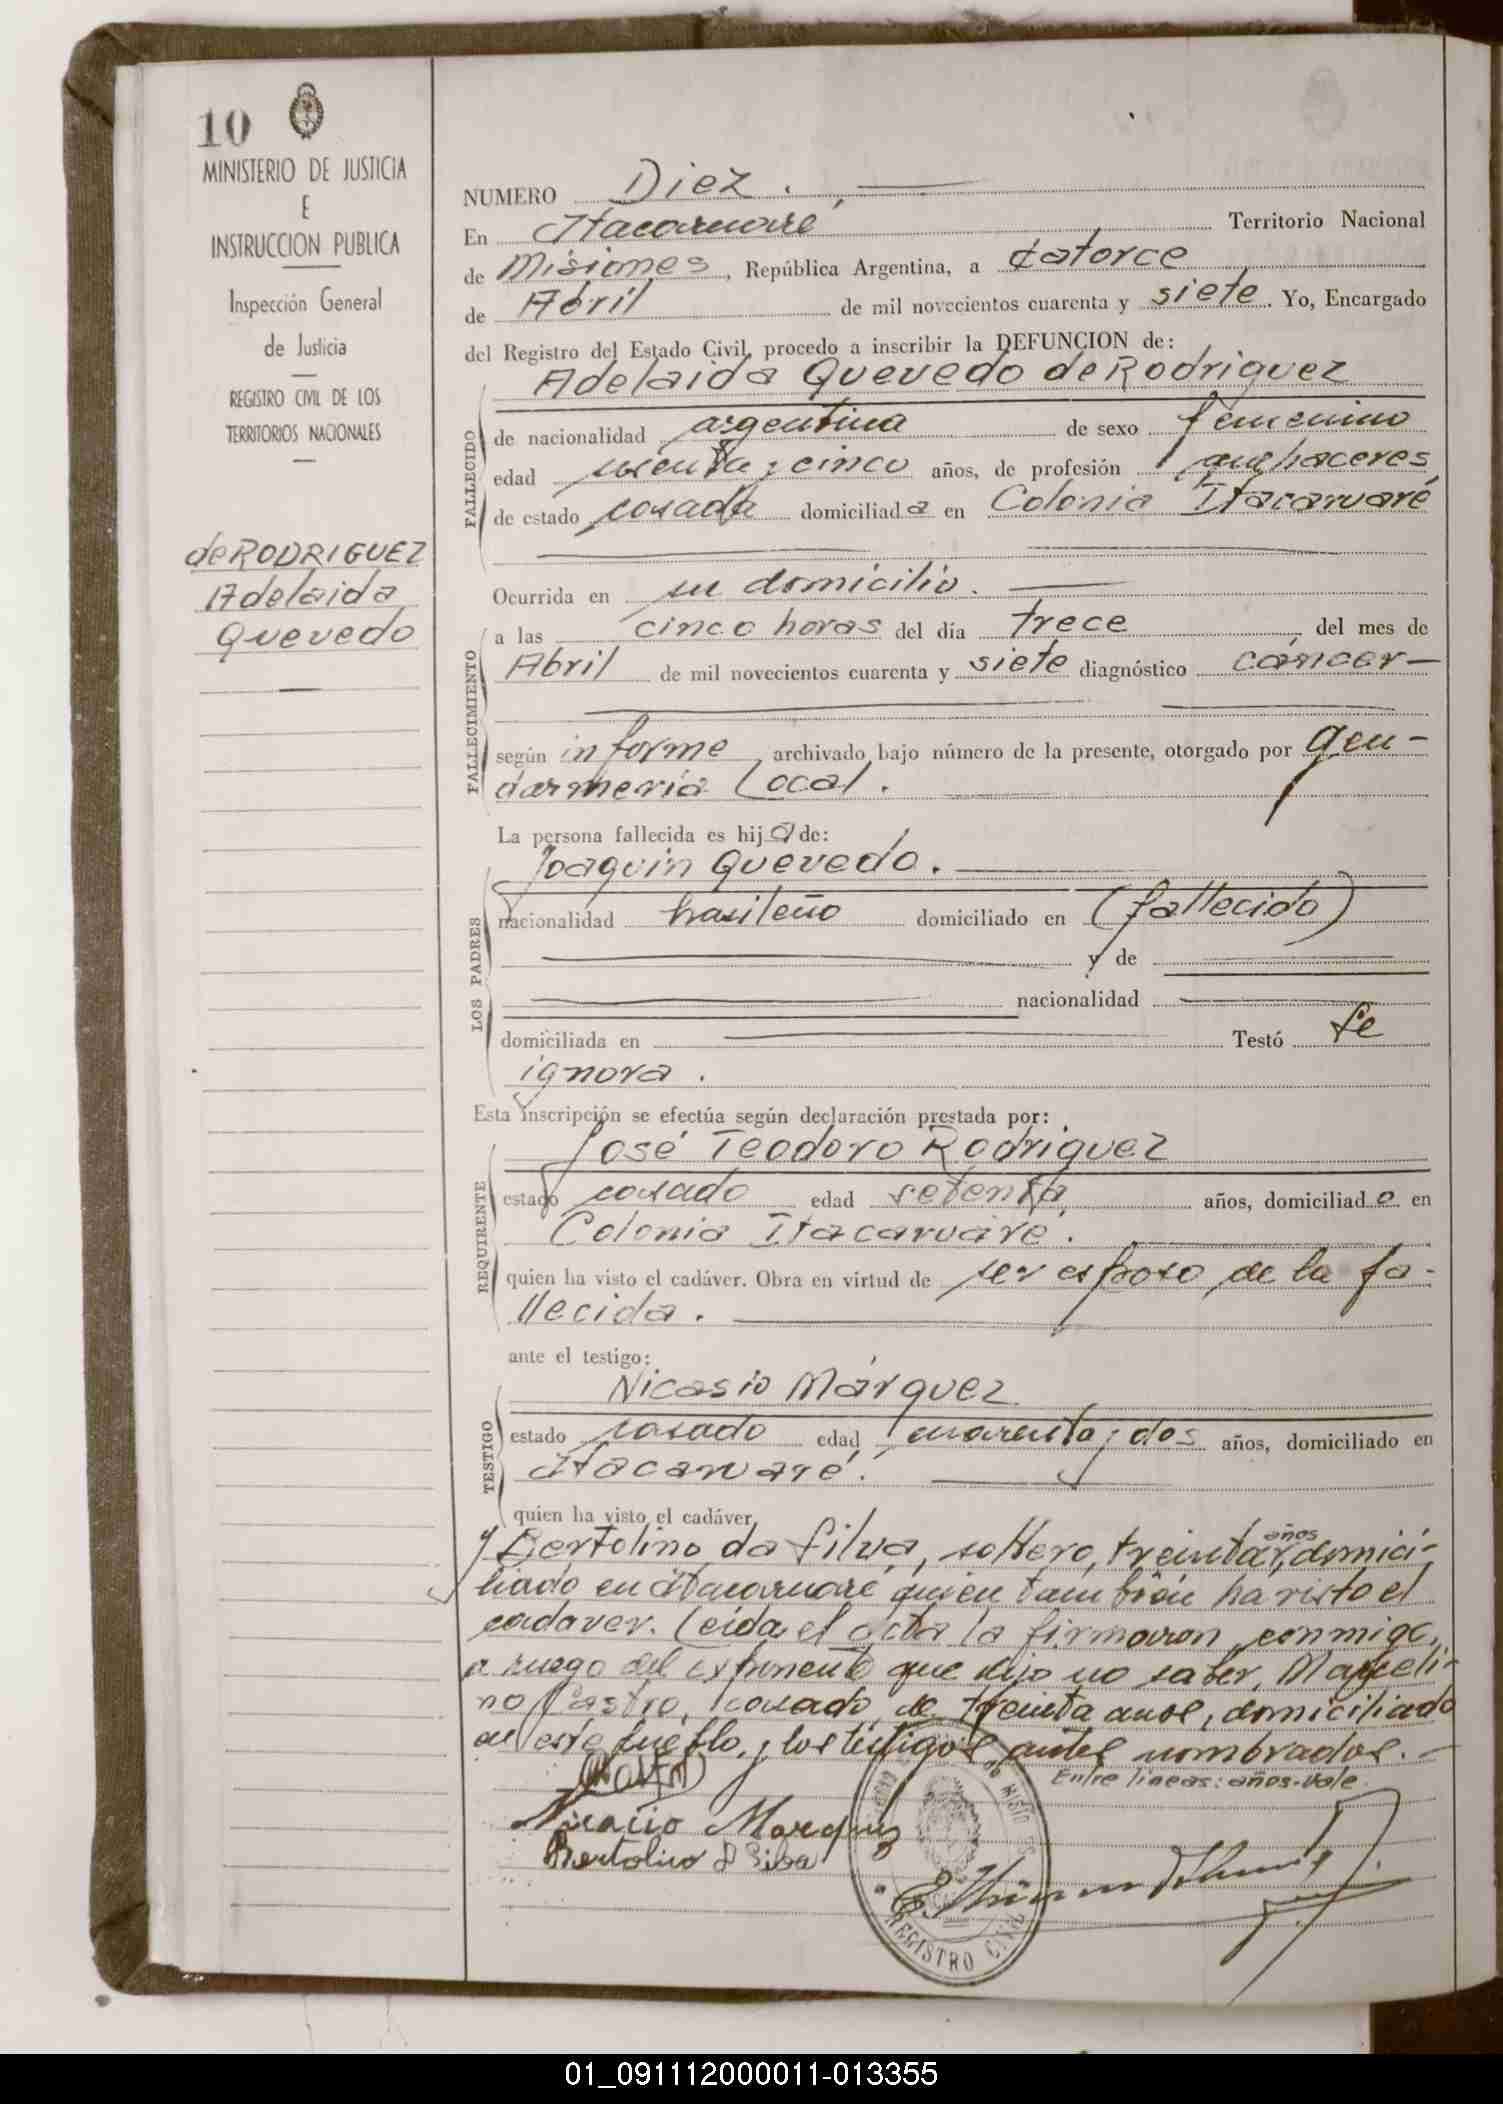 10
MINISTERIO DE JUSTICIA
E
INSTRUCCION PUBLICA
Inspección General
de Justicia
REGISTRO CIVIL DE LOS
TERRITORIOS NACIONALES
de RODRIGUEZ
Adelaida
Quevedo
NUMERO Diez.
En Itacaruaré Territorio Nacional
de Misiones, República Argentina, a catorce
de Abril de mil novecientos cuarenta y siete. Yo, Encargado
del Registro del Estado Civil, procedo a inscribir la DEFUNCION de:
Adelaida Quevedo de Rodriguez
FALLECIDO
de nacionalidad argentina de sexo femenino
edad y cinco años, de profesión quehaceres
de estado casada domiciliada en Colonia Itacaruaré
Ocurrida en su domicilio.
FALLECIMIENTO
a las cinco horas del día trece, del mes de
Abril de mil novecientos cuarenta y siete diagnóstico cáncer
según informe archivado bajo número de la presente, otorgado por Gen-
darmería Local.
La persona fallecida es hija de:
LOS PADRES
Joaquin Quevedo.
nacionalidad brasileño domiciliado en (fallecido)
y de
nacionalidad
domiciliada en Testó se
ignora.
Esta inscripción se efectúa según declaración prestada por:
REQUIRENTE
José Teodoro Rodriguez
estado casado edad setenta años, domiciliado en
Colonia Itacaruaré.
quien ha visto el cadáver. Obra en virtud de ser esposo de la fa-
llecida.
ante el testigo:
TESTIGO
Nicasio Márquez
estado casado edad cuarenta y dos años, domiciliado en
Itacaruaré.
quien ha visto el cadáver
y Bertolino da Silva, soltero, treinta años, domici-
liado en Itacaruaré quien también ha visto el
cadaver. Leida el acta la firmaron conmigo,
a ruego del exponente que dijo no saber, Marceli-
no Castro, casado de treinta años, domiciliado
en este pueblo, y los testigos antes nombrados.
Entre líneas: años. Vale.
Nicacio Marquez
Bertolino d Silva
REGISTRO CIVIL
01_091112000011-013355